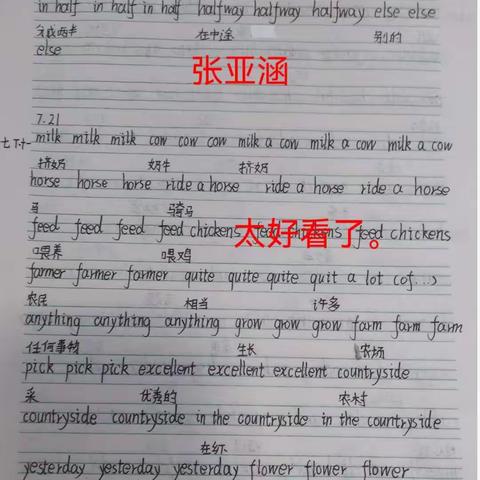 in half in half in half halfway halfway halfway else else
分成两半 在中途 别的
else
张亚涵
7.21
milk milk milk cow cow cow milk a cow milk a cow milk a cow
挤奶 奶牛 挤奶
horse horse horse ride a horse ride a horse ride a horse
马 骑马
feed feed feed feed chickens feed chickens feed chickens
太好看了。
喂养 喂鸡
farmer farmer farmer quite quite quite quit a lot (of...)
农民 相当 许多
anything anything anything grow grow grow farm farm farm
任何事物 生长 农场
pick pick pick excellent excellent excellent countryside
采 优秀的 农村
countryside countryside in the countryside in the countryside
在乡下
yesterday yesterday yesterday flower flower flower